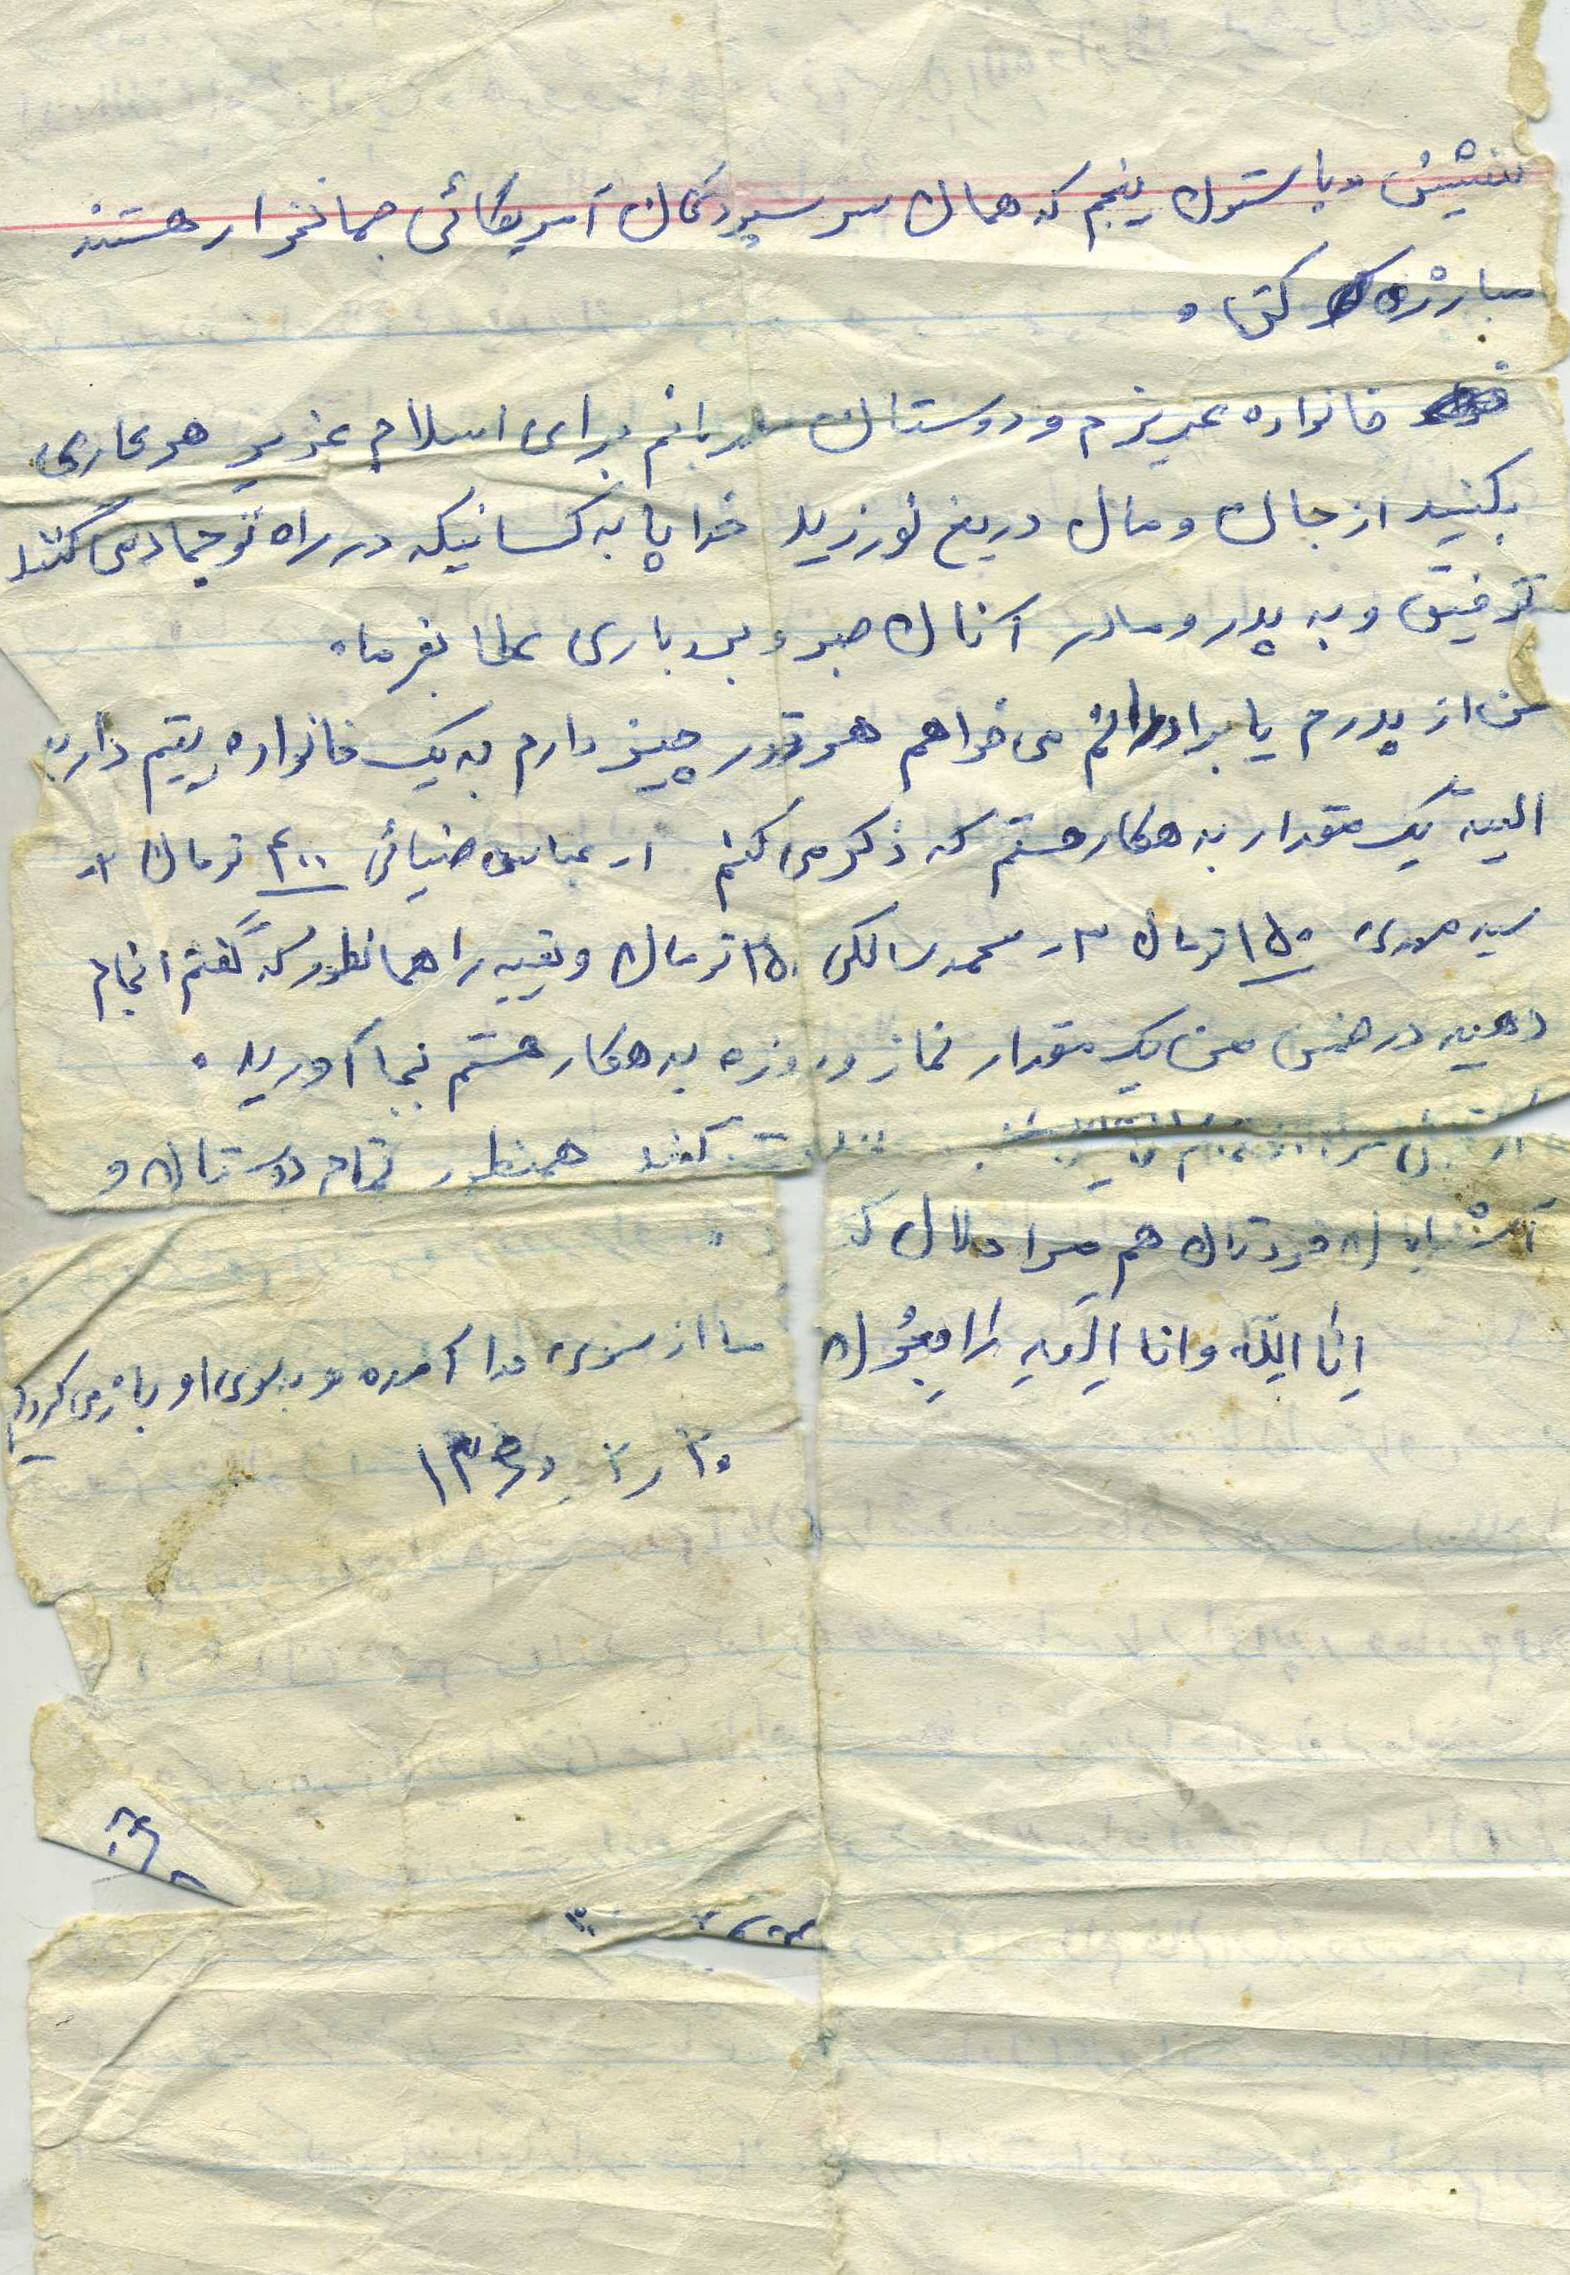 ننشین و با ستون پنجم که همان سر سپردگان آمریکائی جهانخوار هستند
مبارزه کن .
خانواده عزیزم و دوستان مهربانم برای اسلام عزیز هر کاری
بکنید از جان و مال دریغ نورزید خدایا به کسانیکه در راه تو جهاد می کنند
توفیق و به پدر و مادر آنان صبر و بردباری عطا بفرما .
من از پدرم یا برادرانم می خواهم هر قدر چیز دارم به یک خانواده یتیم دار
البته یک مقدار بدهکار هستم که ذکر می کنم ۱ـ عباس ضیائی ۴۰۰ تومان ۲ـ
سید مهدی ۱۵۰ تومان ۳ـ محمد سالکی ۲۵۰ تومان و بقیه را همانطور که گفتم انجام
دهید در ضمن من یک مقدار نماز و روزه بدهکار هستم بجا آورید .
از قبل من از تمام کنند همنطور تمام دوستان و
آشنایان خودتان هم مرا حلال
انا الله وانا الیه راجعون ما از سوی خدا آمده و بسوی او باز می گردیم